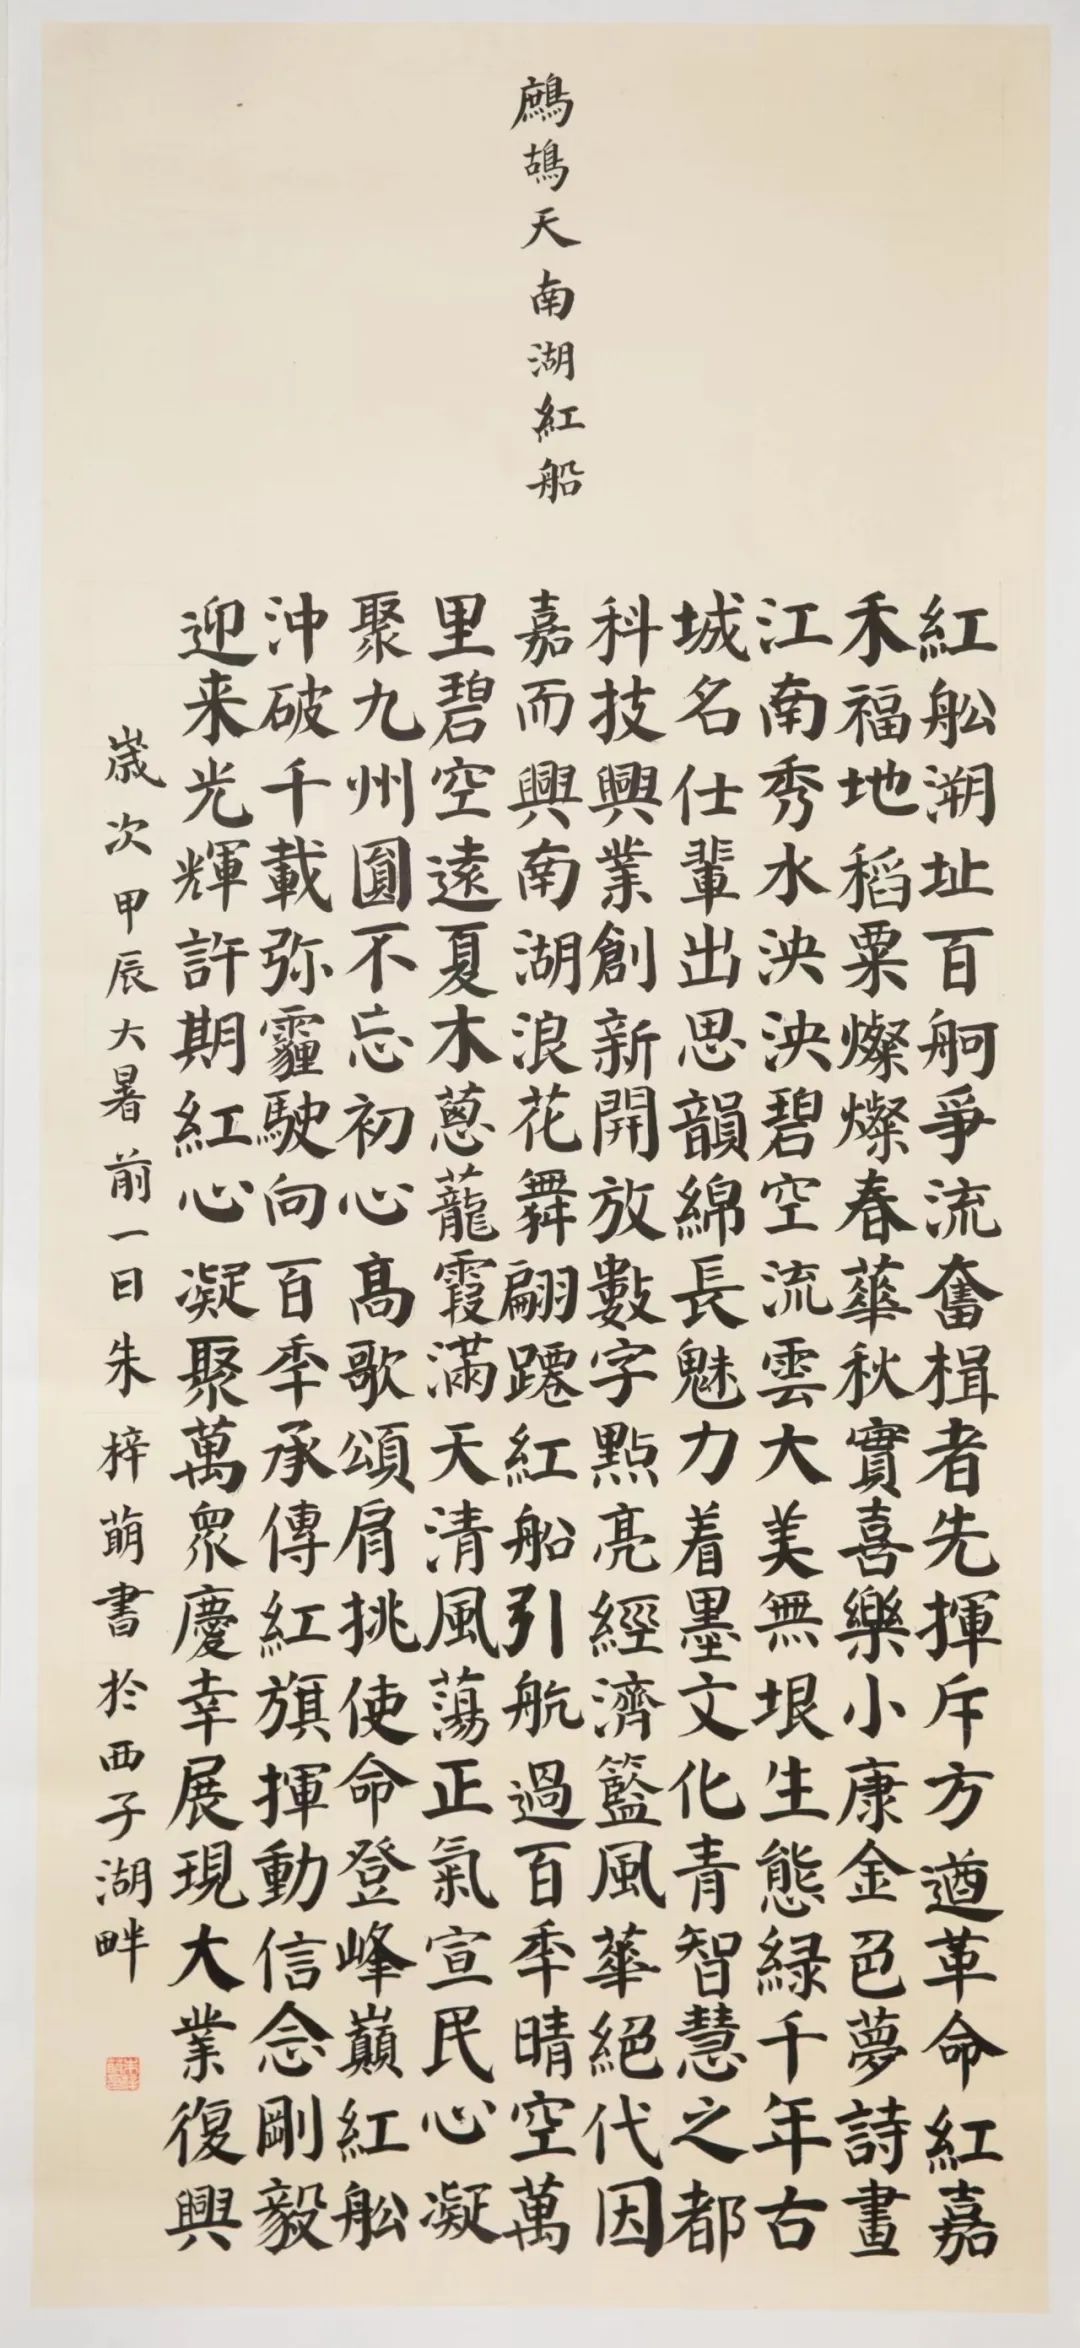 鷓鴣天南湖紅船
紅舩溯址百舸爭流奮楫者先揮斥方遒革命紅嘉
禾福地稻粟燦燦春華秋實喜樂小康金色夢詩畫
江南秀水泱泱碧空流雲大美無垠生態緑千年古
城名仕輩出思韻綿長魅力着墨文化青智慧之都
科技興業創新開放數字點亮經濟籃風華絕代因
嘉而興南湖浪花舞翩躚紅船引航過百年晴空萬
里碧空遠夏木蔥蘢霞滿天清風蕩正氣宣民心凝
聚九州圓不忘初心高歌頌肩挑使命登峰巔紅舩
沖破千載弥霾駛向百年承傳紅旗揮動信念剛毅
迎来光輝許期紅心凝聚萬眾慶幸展現大業復興
歲次甲辰大暑前一日朱梓萌書於西子湖畔